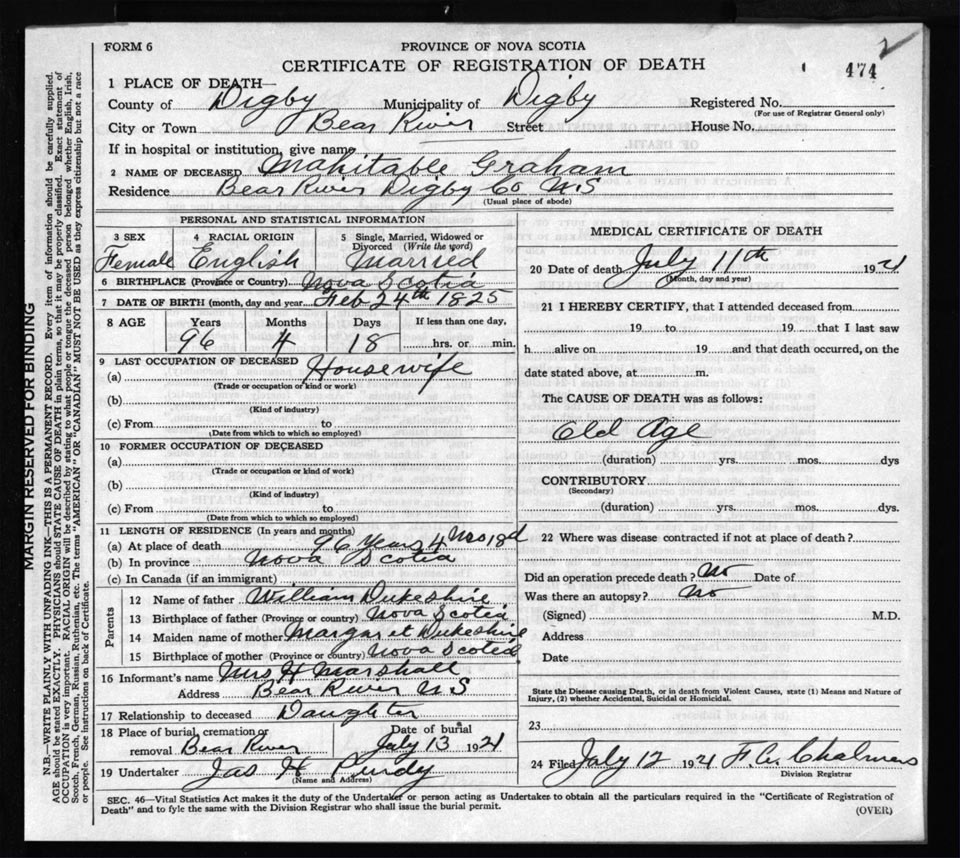 FORM 6
PROVINCE OF NOVA SCOTIA
CERTIFICATE OF REGISTRATION OF DEATH
474
2
1 PLACE OF DEATH—
County of Digby Municipality of Digby Registered No.
(For use of Registrar General only)
City or Town Bear River Street House No.
If in hospital or institution, give name
2 NAME OF DECEASED Mahitable Graham
Residence Bear River Digby Co N.S
(Usual place of abode)
PERSONAL AND STATISTICAL INFORMATION
3 SEX Female
4 RACIAL ORIGIN English
5 Single, Married, Widowed or Divorced (Write the word) Married
6 BIRTHPLACE (Province or Country) Nova Scotia
7 DATE OF BIRTH (month, day and year) Feb 24th 1825
8 AGE Years Months Days If less than one day,
96 4 18 hrs. or min.
9 LAST OCCUPATION OF DECEASED
(a) Housewife
(Trade or occupation or kind or work)
(b)
(Kind of industry)
(c) From to
(Date from which to which so employed)
10 FORMER OCCUPATION OF DECEASED
(a)
(Trade or occupation or kind of work)
(b)
(Kind of industry)
(c) From to
(Date from which to which so employed)
11 LENGTH OF RESIDENCE (In years and months)
(a) At place of death 96 Years 4 Mos 18d
(b) In province Nova Scotia
(c) In Canada (if an immigrant)
Parents
12 Name of father William Dukeshire
13 Birthplace of father (Province or country) Nova Scotia
14 Maiden name of mother Margaret Dukeshire
15 Birthplace of mother (Province or country) Nova Scotia
16 Informant's name Mrs H Marshall
Address Bear River N S
17 Relationship to deceased Daughter
18 Place of burial, cremation or removal Bear River
Date of burial July 13 1921
19 Undertaker Jas H Purdy
(Name and Address)
MEDICAL CERTIFICATE OF DEATH
20 Date of death July 11th 1921
(Month, day and year)
21 I HEREBY CERTIFY, that I attended deceased from
19 to 19 that I last saw
h alive on 19 and that death occurred, on the
date stated above, at m.
The CAUSE OF DEATH was as follows:
Old Age
(duration) yrs. mos. dys
CONTRIBUTORY
(Secondary)
(duration) yrs. mos. dys.
22 Where was disease contracted if not at place of death?
Did an operation precede death? No Date of
Was there an autopsy? No
(Signed) M.D.
Address
Date
State the Disease causing Death, or in death from Violent Causes, state (1) Means and Nature of
Injury, (2) whether Accidental, Suicidal or Homicidal.
23
24 Filed July 12 1921 F. A. Chalmers
Division Registrar
SEC. 46—Vital Statistics Act makes it the duty of the Undertaker or person acting as Undertaker to obtain all the particulars required in the "Certificate of Registration of
Death" and to fyle the same with the Division Registrar who shall issue the burial permit.
(OVER)
MARGIN RESERVED FOR BINDING
N.B.—WRITE PLAINLY WITH UNFADING INK—THIS IS A PERMANENT RECORD. Every item of information should be carefully supplied.
AGE should be stated EXACTLY. PHYSICIANS should STATE CAUSE OF DEATH in plain terms, so that it may be properly classified. Exact statement of
OCCUPATION is very important. RACIAL ORIGIN will be described by stating to what people or tongue the deceased person belonged whether English, Irish,
Scotch, French, German, Russian, Ruthenian, etc. The terms "AMERICAN" OR "CANADIAN" MUST NOT BE USED as they express citizenship but not a race
or people. See instructions on back of Certificate.